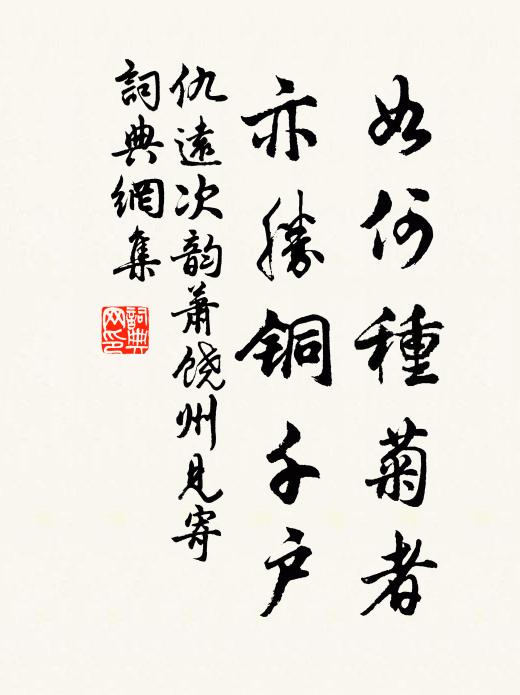 如何種菊者
亦勝銅千户
仇遠次韵萧饶州見寄
詞典網集
詞典网印